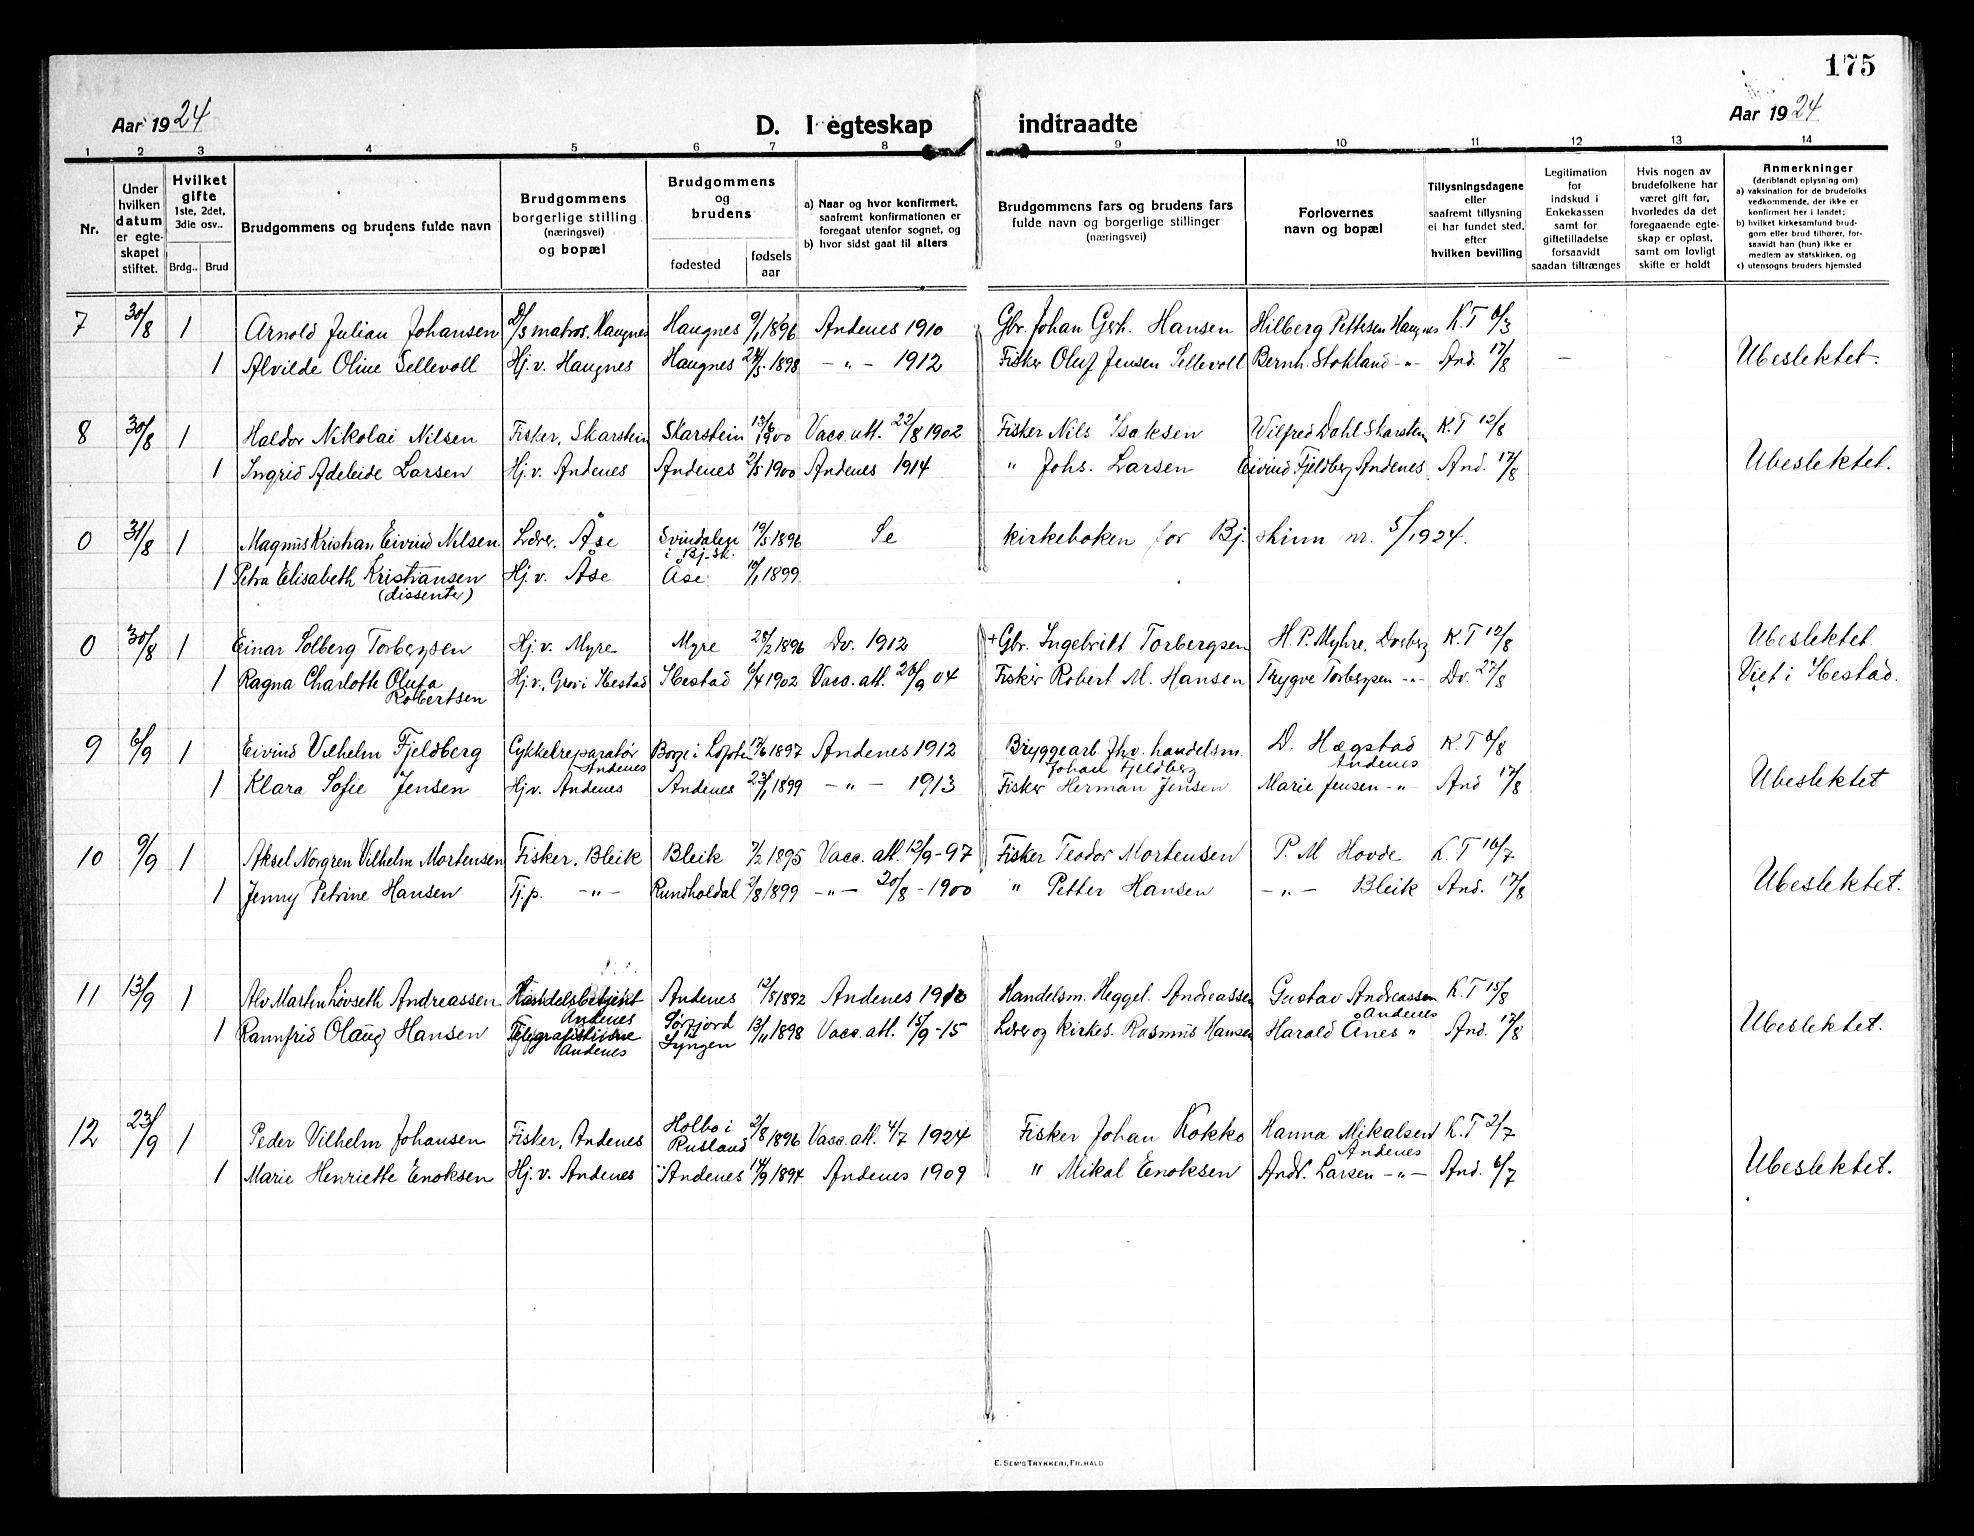 175
Aar 1924 D. I egteskap indtraadte Aar 1924
1 2 3 4 5 6 7 8 9 10 11 12 13 14
Nr.
Under hvilken datum er egte-skapet stiftet.
Hvilket gifte 1ste, 2det, 3die osv..
Brdg.. Brud
Brudgommens og brudens fulde navn
Brudgommens borgerlige stilling (næringsvei) og bopæl
Brudgommens og brudens
fødested fødsels aar
a) Naar og hvor konfirmert, saafremt konfirmationen er foregaat utenfor sognet, og
b) hvor sidst gaat til alters
Brudgommens fars og brudens fars fulde navn og borgerlige stillinger (næringsvei)
Forlovernes navn og bopæl
Tillysningsdagene eller saafremt tillysning ei har fundet sted, efter hvilken bevilling
Legitimation for indskud i Enkekassen samt for giftetilladelse forsaavidt saadan tiltrænges
Hvis nogen av brudefolkene har været gift før, hvorledes da det foregaaende egte-skap er opløst, samt om lovligt skifte er holdt
Anmerkninger (deriblandt oplysning om)
a) vaksination for de brudefolks vedkommende, der ikke er konfirmert her i landet;
b) hvilket kirkesamfund brud-gom eller brud tilhører, for-saavidt han (hun) ikke er medlem av statskirken, og
c) utensogns bruders hjemsted
7 30/8 1 Arnold Julian Johansen D/S matros, Haugnes Haugnes 9/1 1896 Andenes 1910 Gbr. Johan Gerh. Hansen Hilberg Pettesen Haugnes K.T
1 Alvilde Oline Sellevoll Hj.v. Haugnes Haugnes 1898 -"- 1912 Fisker Oluf Jensen Sellevoll Bernh. Stokland -"- And. 17/8 – Ubeslektet.
8 30/8 1 Haldor Nikolai Nilsen Fisker, Skarstein Skarstein 13/6 1900 Vacc. att. 22/8 1902 Fisker Nils Isaksen Wilfred Dahl Skarstein K.T 12/8
1 Ingrid Adeleide Larsen Hj.v. Andenes Andenes 2/5 1900 Andenes 1914 " Johs. Larsen Eivind Fjeldberg Andenes And. 17/8 Ubeslektet.
0 31/8 1 Magnus Kristian Eivind Nilsen Lærer, Åse Svindalen i Bj.sk. 19/5 1896 Se kirkeboken for Bj.skinn nr. 5/1924.
1 Petra Elisabeth Kristiansen Hj.v. Åse Åse 1899
(dissenter)
0 30/8 1 Einar Solberg Torbergsen Hj.v. Myre Myre 28/2 1896 Dv. 1912 + Gbr. Ingebrikt Torbergsen H. P. Myhre, Dverberg K.T 12/8 Ubeslektet
1 Ragna Charlotte Olufa Hj.v., Grov i Ibestad Ibestad 6/4 1902 Vacc. att. 26/9 04 Fisker Robert M. Hansen Trygve Torbergsen -"- Dv. 27/8 Viet i Ibestad.
Robertsen
9 6/9 1 Eivind Vilhelm Fjeldberg Cykkelreparatør Borge i Lofoten 17/6 1897 Andenes 1912 Bryggearb. fhv. handelsm. D. Hægstad K.T
Andenes Johan Fjeldberg Andenes
1 Klara Sofie Jensen Hj.v. Andenes Andenes 23/1 1899 -"- 1913 Fisker Herman Jensen Marie Jensen -"- And 17/8 Ubeslektet
10 9/9 1 Aksel Norgren Vilhelm Mortensen Fisker, Bleik Bleik 7/2 1895 Vacc. att. 12/9-97 Fisker Teodor Mortensen P. M Hovde K.T 16/7
1 Jenny Petrine Hansen Tj.p. -"- Rundholdal 2/8 1899 -"- 20/8-1900 " Petter Hansen -"- Bleik And. 17/8 Ubeslektet.
11 13/9 1 Alv Martin Livseth Andreassen Handelsbetjent Andenes 12/8 1892 Andenes Handelsm. Heggel. Andreassen Gustav Andreassen K.T 15/8
Andenes Andenes
1 Rannfrid Olaug Hansen Telegrafistinne Sørfjord 13/11 1898 Vacc. att. 15/9-15 Lærer og kirkes. Rasmus Hansen Harald Ånes " And. 17/8 Ubeslektet.
Andenes Lyngen
12 23/9 1 Peder Vilhelm Johansen Fisker, Andenes Holbo i Rusland 2/8 1896 Vacc. att. 4/7 1924 Fisker Johan Kokko Hanna Mikalsen K.T 2/7
Andenes
1 Marie Henriette Enoksen Hj.v. Andenes Andenes 14/9 1894 Andenes 1909 " Mikal Enoksen Andr. Larsen -"- And. 6/7 Ubeslektet.
E. SEM'S TRYKKERI, FR.HALD